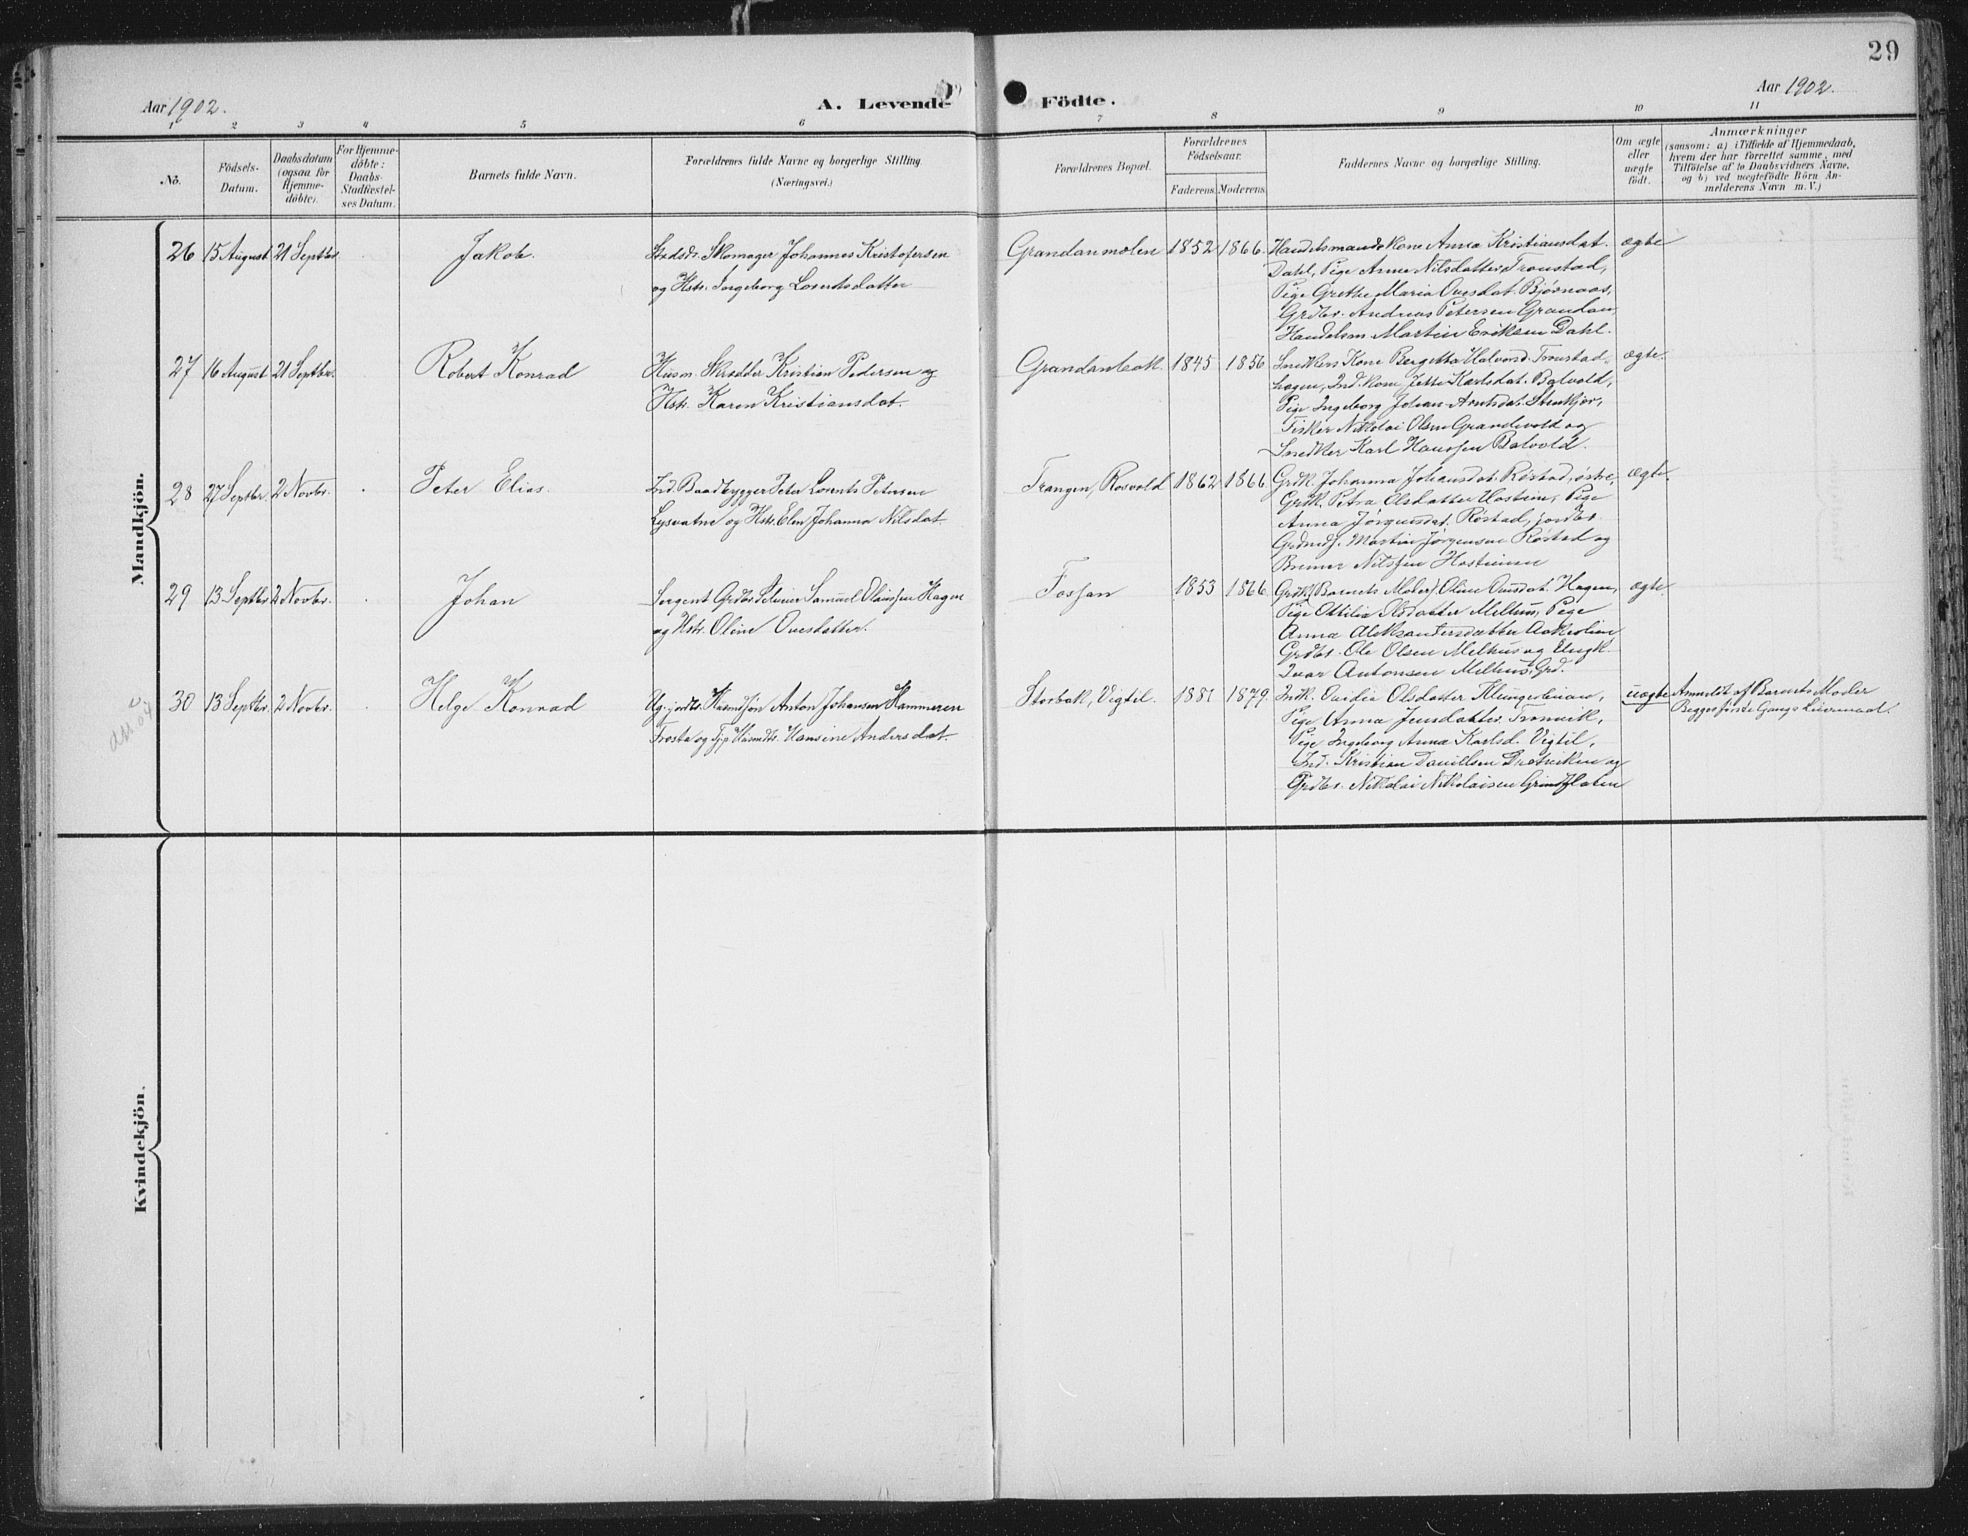 29
Aar 1902.
A. Levende Födte.
Aar 1902.
1 2 3 4 5 6 7 8 9 10 11
No.
Födsels-
Datum.
Daabsdatum
(ogsaa for
Hjemme-
døbte).
For Hjemme-
døbte:
Daabs-
Stadfæstel-
ses Datum.
Barnets fulde Navn.
Forældrenes fulde Navne og borgerlige Stilling.
(Næringsvei.)
Forældrenes Bopæl.
Forældrenes
Födselsaar.
Faderens. Moderens.
Faddernes Navne og borgerlige Stilling.
Om ægte
eller
uægte
födt.
Anmærkninger
(saasom: a) i Tilfælde af Hjemmedaab,
hvem der har forrettet samme, med
Tilföielse af to Daabsvidners Navne,
og b) ved uægtefödte Börn An-
melderens Navn m. V.)
Mandkjön.
26 15 August 21 Septbr. Jakob.
Skomager Johannes Kristofersen
og Hstr. Ingeborg Lorentsdatter
Grandanmolen 1852 1866.
Handelsmands Kone Anna Kristiansdat.
Dahl, Pige Anne Nilsdatter Troustad,
Pige Grethe Maria Ovesdat. Bjørnaas,
Grdbr. Andreas Petersen Grandan,
Handelsm. Martin Eriksen Dahl.
ægte
27 16 August 21 Septbr. Robert Konrad
Husm. Skrædder Kristian Pedersen og
Hstr. Karen Kristiansdat.
Grandanbak. 1845 1856
Snedkers Kone Bergitta Halvorsd. Troustad-
hagen, Ind. kone Jette Karlsdat. Balvold,
Pige Ingeborg Johan-Arntsdat. Stenkjær,
Fisker Nikolai Olsen Grandevold og
Snedker Karl Hanssen Balvold.
ægte.
28 27 Septbr. 2 Novbr. Peter Elias.
Ind. Baadbygger Peter Lorents Petersen
Lysvatne og Hstr. Elen Johanna Nilsdat.
Trangen, Rosvold 1862 1866
Grdk. Johanna Johansdat. Røstad, østre,
Grdk. Petra Olsdatter Hostein, Pige
Anna Jørgensdat. Røstad,
Martin Jørgensen Røstad og
Nilssen
ægte.
29 13 Septbr. 2 Novbr. Johan
Sergent Grdbr. Samuel Olaussen Hagen
og Hstr. Oline Ovesdatter.
Fossan 1853 1866.
Grdk. (Barnets Moder) Oline Ovesdat. Hagen,
Pige Ottilia Olsdatter Melhus, Pige
Anna Aleksandersdatter
Grdbr. Ole Olsen Melhus og Ungk.
Ivar Antonsen Melhus, Grd.
ægte.
30 13 Septbr. 2 Novbr. Helge Konrad
Ug. jordbr. Husmdsøn Anton Johansen Hammeren
Frosta og Tjp. Husmdtr. Hansine Andersdat.
Storbak, Vigtil. 1881 1879.
Indk. Olsdatter
Pige Anna Jensdatter Tronvik,
Pige Ingeborg Anna Karlsd. Vigtil,
Ind. Kristian Danielsen og
Grdbr. Nikolai Nikolaisen
uægte
Anmeldt af Barnets Moder
Begges første Gangs Leiermaal.
Kvindekjön.